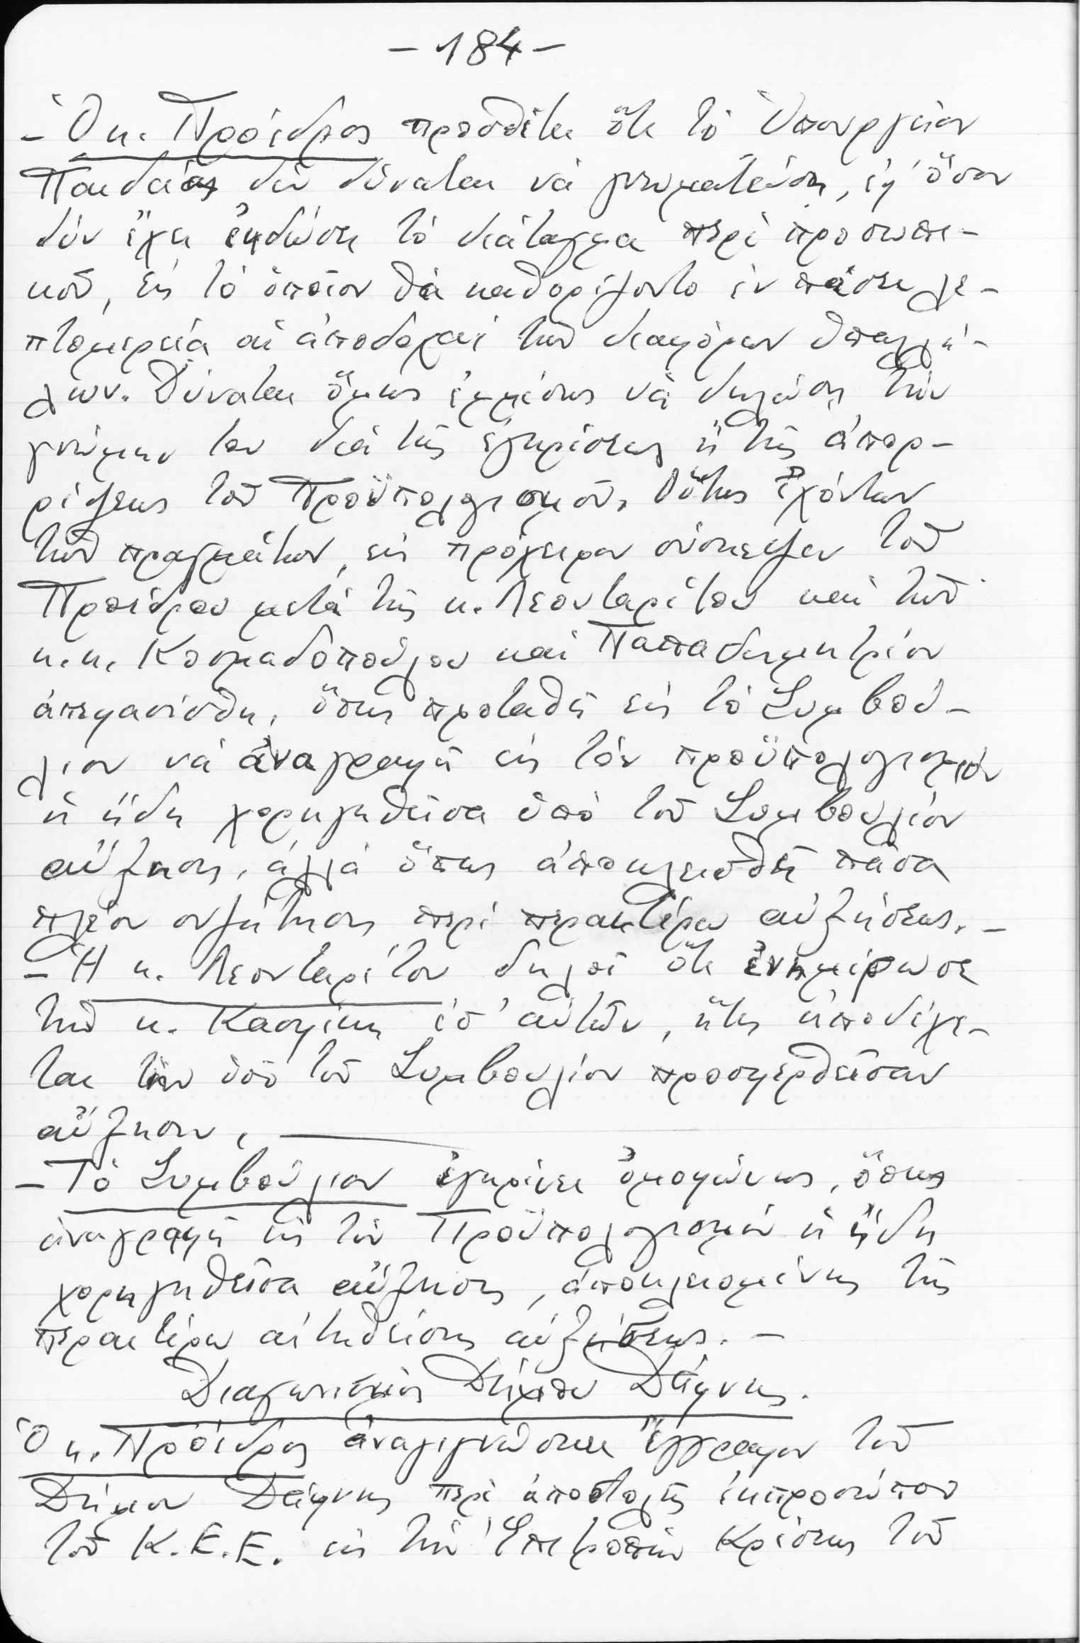 - 184 -
- Ὁ κ. Πρόεδρος προσθέτει ὅτι τὸ Ὑπουργεῖον
Παιδείας δὲν δύναται νὰ γνωματεύσῃ, ἐφ' ὅσον
δὲν ἔχει ἐκδώσει τὸ διάταγμα περὶ προσωπι-
κοῦ, εἰς τὸ ὁποῖον θὰ καθορίζοντο ἐν πάσει λε-
πτομερείᾳ αἱ ἀποδοχαὶ τῶν διαφόρων ὑπαλλή-
λων. Δύναται ὅμως ἐμμέσως νὰ δηλώσῃ τὴν
γνώμην του διὰ τῆς ἐγκρίσεως ἢ τῆς ἀπορ-
ρίψεως τοῦ Προϋπολογισμοῦ. Οὕτως ἐχόντων
τῶν πραγμάτων, εἰς πρόχειρον σύσκεψιν τοῦ
Προέδρου μετὰ τῆς κ. Λεονταρίτου καὶ τῶν
κ.κ. Κοσμαδοπούλου καὶ Παπαδημητρίου
ἀπεφασίσθη, ὅπως προταθῇ εἰς τὸ Συμβού-
λιον νὰ ἀναγραφῇ εἰς τὸν προϋπολογισμὸν
ἡ ἤδη χορηγηθεῖσα ὑπὸ τοῦ Συμβουλίου
αὔξησις, ἀλλὰ ὅπως ἀποκλεισθῇ πᾶσα
πλέον συζήτησις περὶ περαιτέρω αὐξήσεως. -
- Ἡ κ. Λεονταρίτου δηλοῖ ὅτι ἐνημέρωσε
τὴν κ. Κασίμη ἐπ' αὐτῶν, ἥτις ἀποδέχε-
ται τὴν ὑπὸ τοῦ Συμβουλίου προσφερθεῖσαν
αὔξησιν.
- Τὸ Συμβούλιον ἐγκρίνει ὁμοφώνως, ὅπως
ἀναγραφῇ εἰς τὸν Προϋπολογισμὸν ἡ ἤδη
χορηγηθεῖσα αὔξησις, ἀποκλειομένης τῆς
περαιτέρω αἰτηθείσης αὐξήσεως. -
Διαγωνισμὸς Δήμου Δάφνης.
Ὁ κ. Πρόεδρος ἀναγιγνώσκει ἔγγραφον τοῦ
Δήμου Δάφνης περὶ ἀποστολῆς ἐκπροσώπου
τοῦ Κ.Ε.Ε. εἰς τὴν Ἐπιτροπὴν Κρίσεως τοῦ